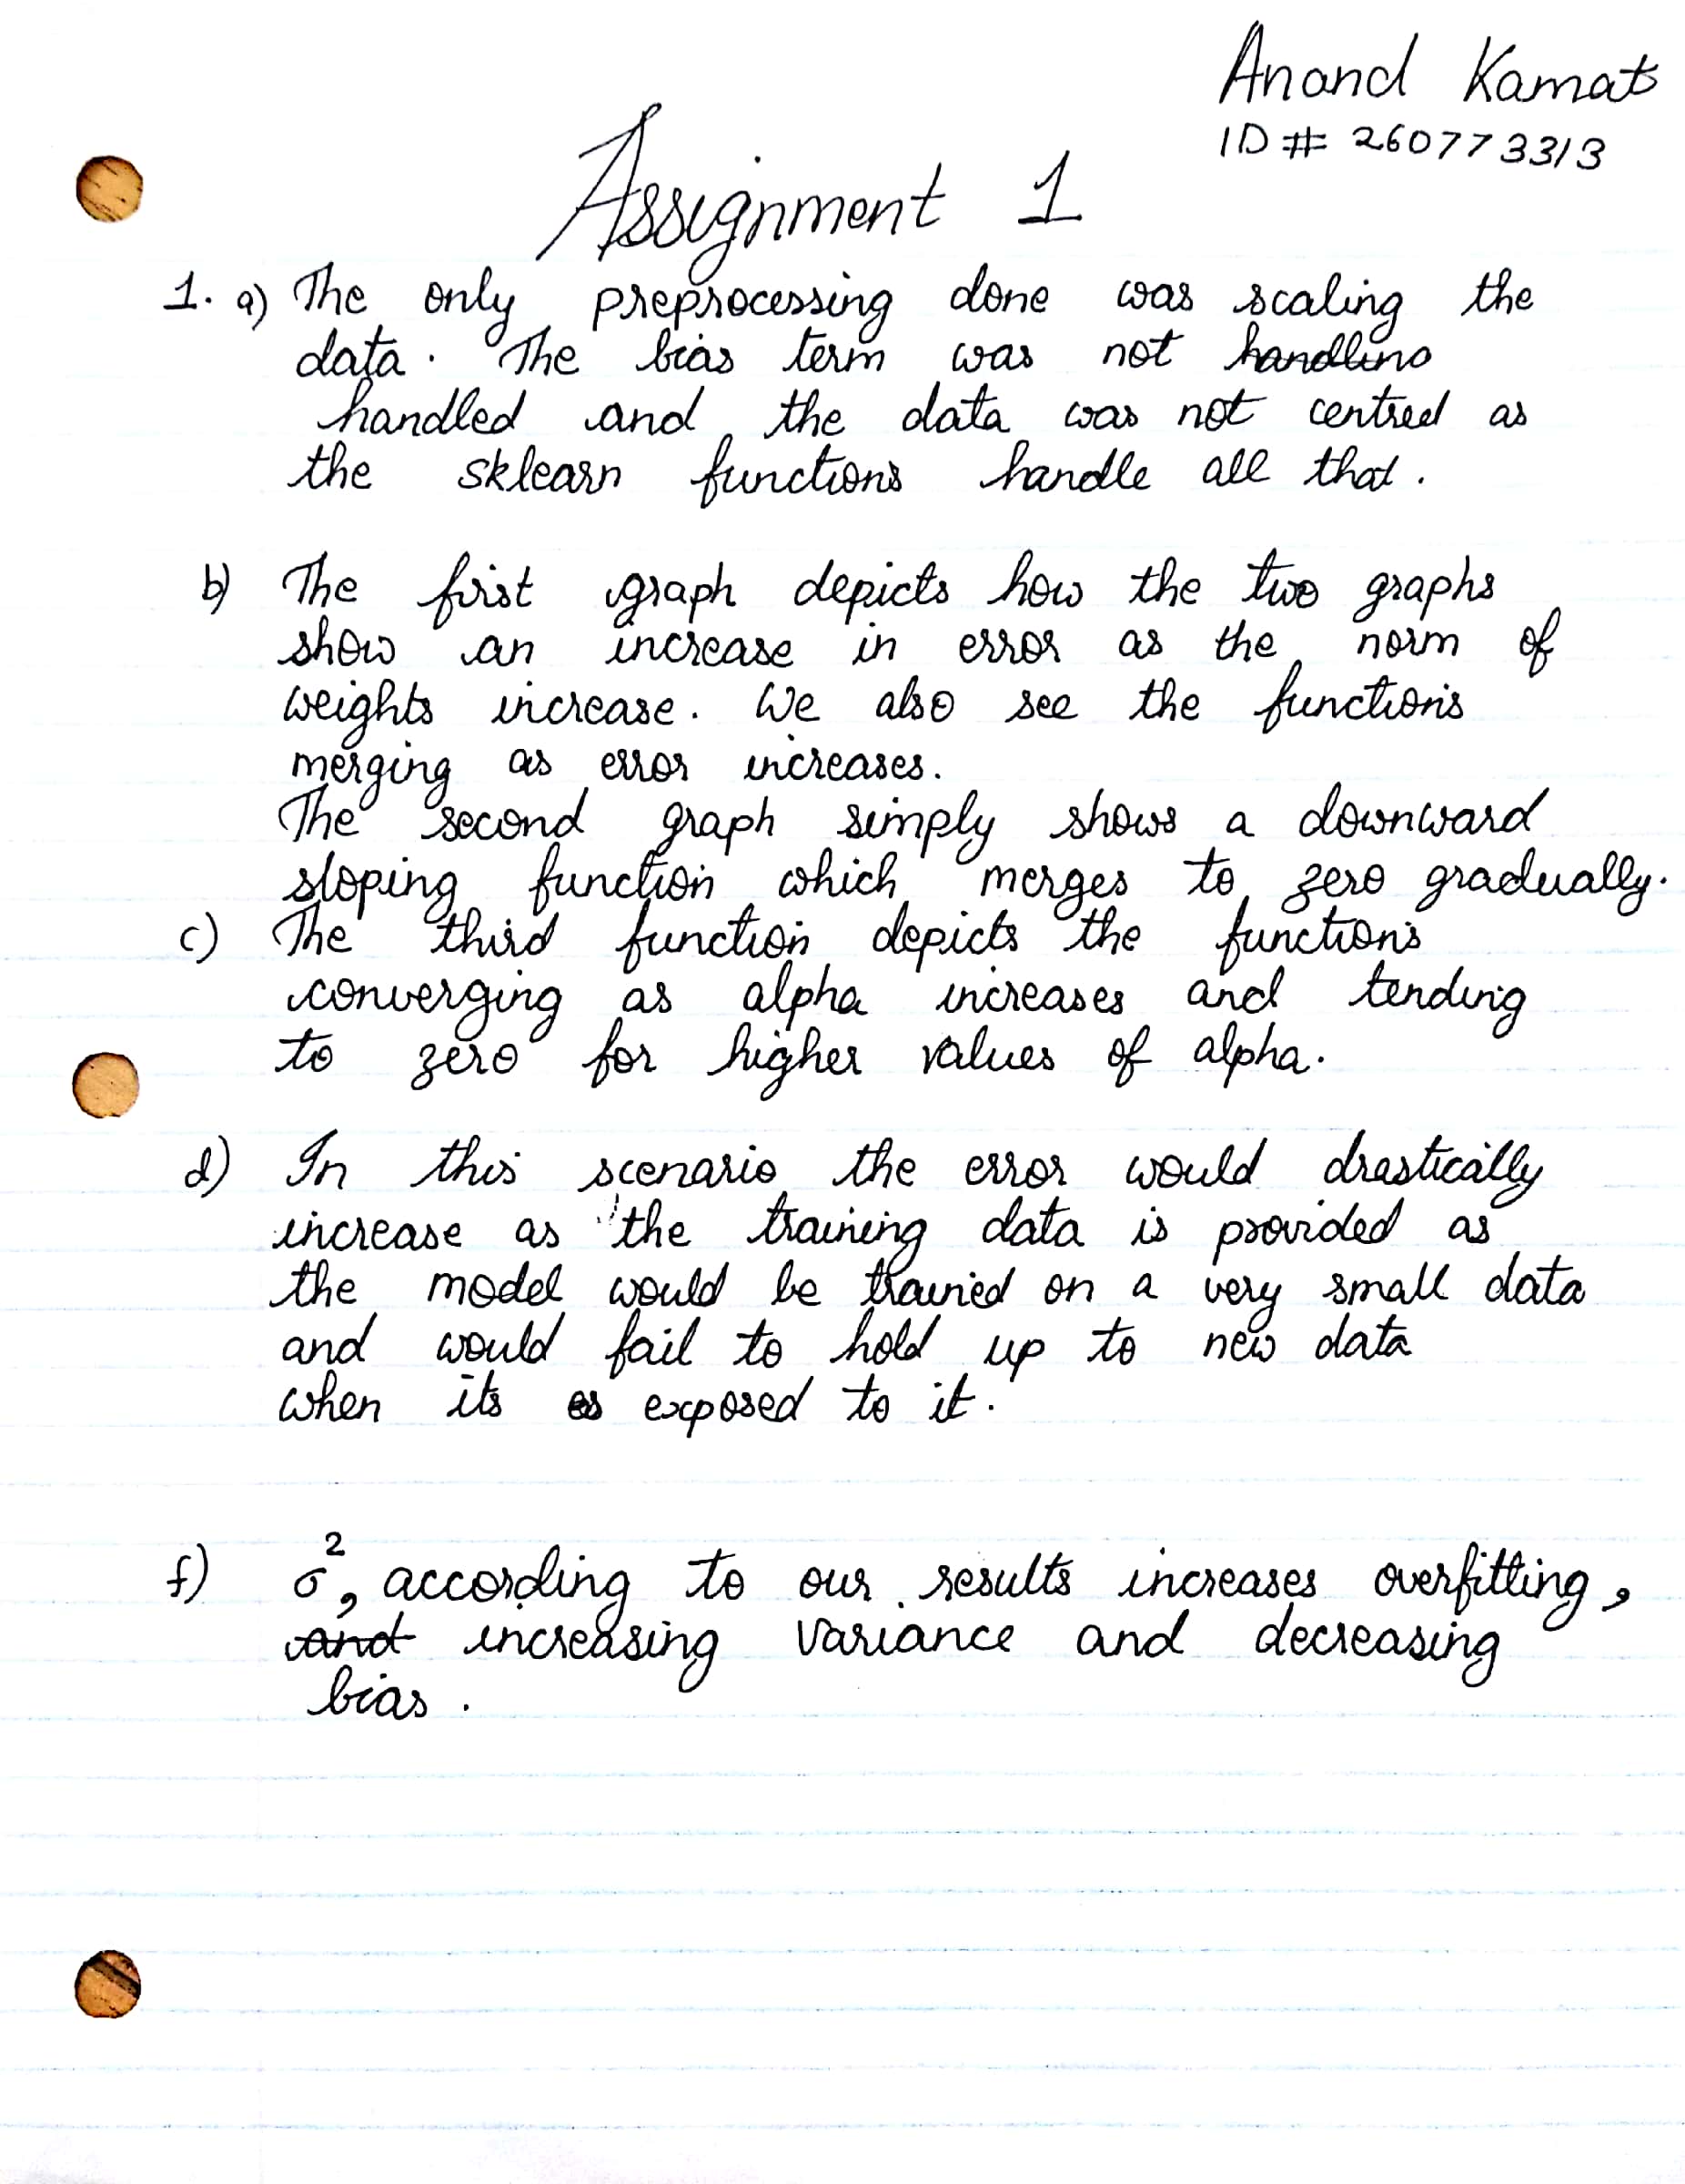 Anand Kamat
ID # 260773313
Assignment 1
1. a) The only preprocessing done was scaling the
data. The bias term was not handling
handled and the data was not centred as
the sklearn functions handle all that.
b) The first graph depicts how the two graphs
show an increase in error as the norm of
weights increase. We also see the functions
merging as error increases.
The second graph simply shows a downward
sloping function which merges to zero gradually.
c) The third function depicts the functions
converging as alpha increases and tending
to zero for higher values of alpha.
d) In this scenario the error would drastically
increase as the training data is provided as
the model would be trained on a very small data
and would fail to hold up to new data
when its exposed to it.
f) σ², according to our results increases overfitting,
and increasing variance and decreasing
bias.